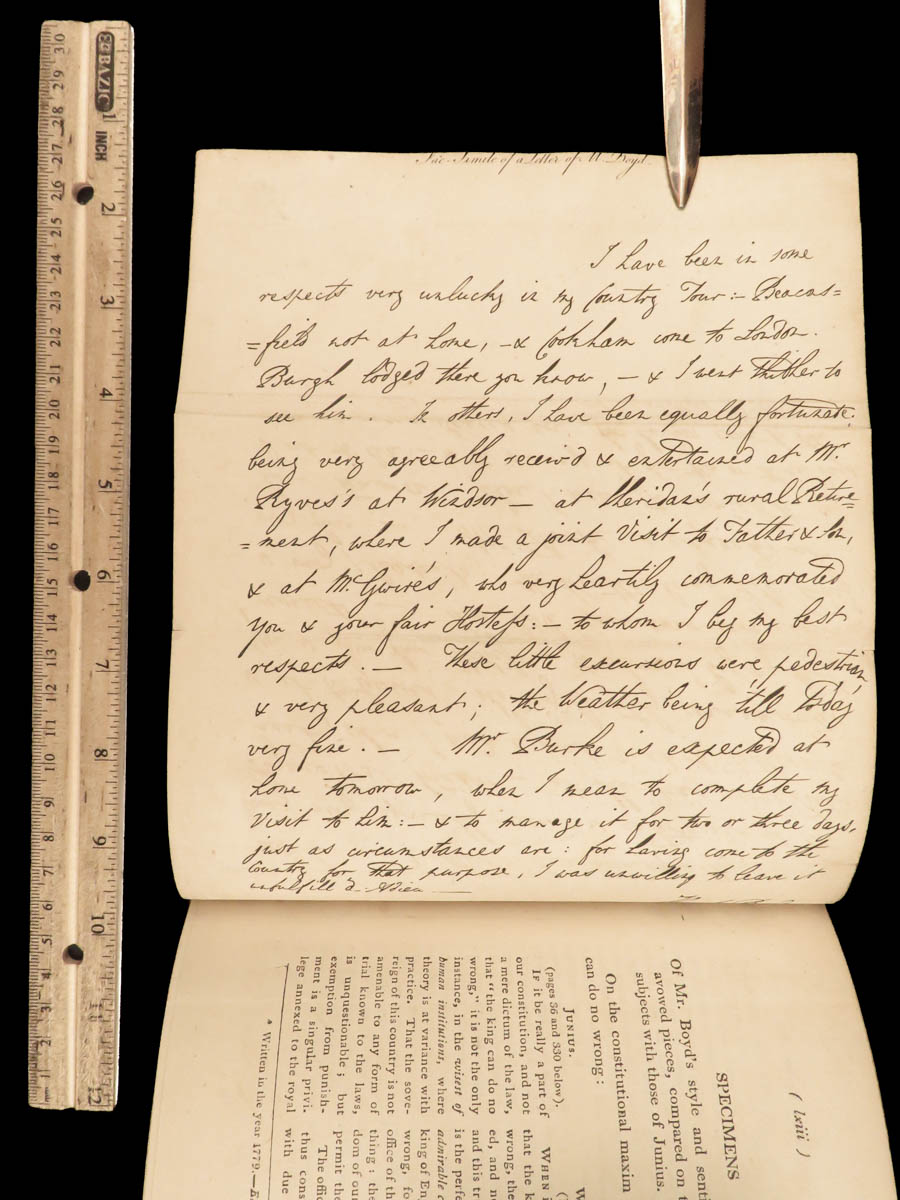 Fac-Simile of a Letter of Mr. Boyd.
I have been in some
respects very unlucky in my Country Tour:- Beacns=
=field not at home, -& Cookham come to London.
Burgh lodged there you know, — & I went thither to
see him. In others, I have been equally fortunate:
being very agreeably receiv'd & entertained at Mr.
Ryves's at Windsor — at Sheridan's rural Retire=
=ment, where I made a joint Visit to Father & Son,
& at McGwire's, who very heartily commemorated
you & your fair Hostess: — to whom I beg my best
respects. — These little excursions were pedestrian
& very pleasant; the Weather being 'till Today
very fine. — Mr. Burke is expected at
home tomorrow, when I mean to complete my
Visit to him: — & to manage it for two or three days,
just as circumstances are: for having come to the
Country for that purpose, I was unwilling to leave it
unfulfill'd. Adieu —
( lxiii )
SPECIMENS
Of Mr. Boyd's style and senti
avowed pieces, compared on t
subjects with those of Junius.
On the constitutional maxim
can do no wrong:
JUNIUS.
(pages 36 and 330 below).
IF it be really a part of
our constitution, and not
a mere dictum of the law,
that "the king can do no
wrong," it is not the only
instance, in the wisest of
human institutions, where
theory is at variance with
practice. That the sove-
reign of this country is not
amenable to any form of
trial known to the laws,
is unquestionable; but
exemption from punish-
ment is a singular privi-
lege annexed to the royal
W
WHEN i
that the k
wrong, the
ed, and n
and this tr
is the perfe
admirable c
king of En
wrong, fo
office of th
thing: the
dom of ou
permit the
The offic
thus cons
with due
* Written in the year 1779.—E
BAZIC
INCH
1
2
3
4
5
6
7
8
9
10
12
30
29
28
27
26
25
24
23
22
21
20
19
18
17
16
15
14
13
12
11
10
9
8
7
6
5
4
3
2
1